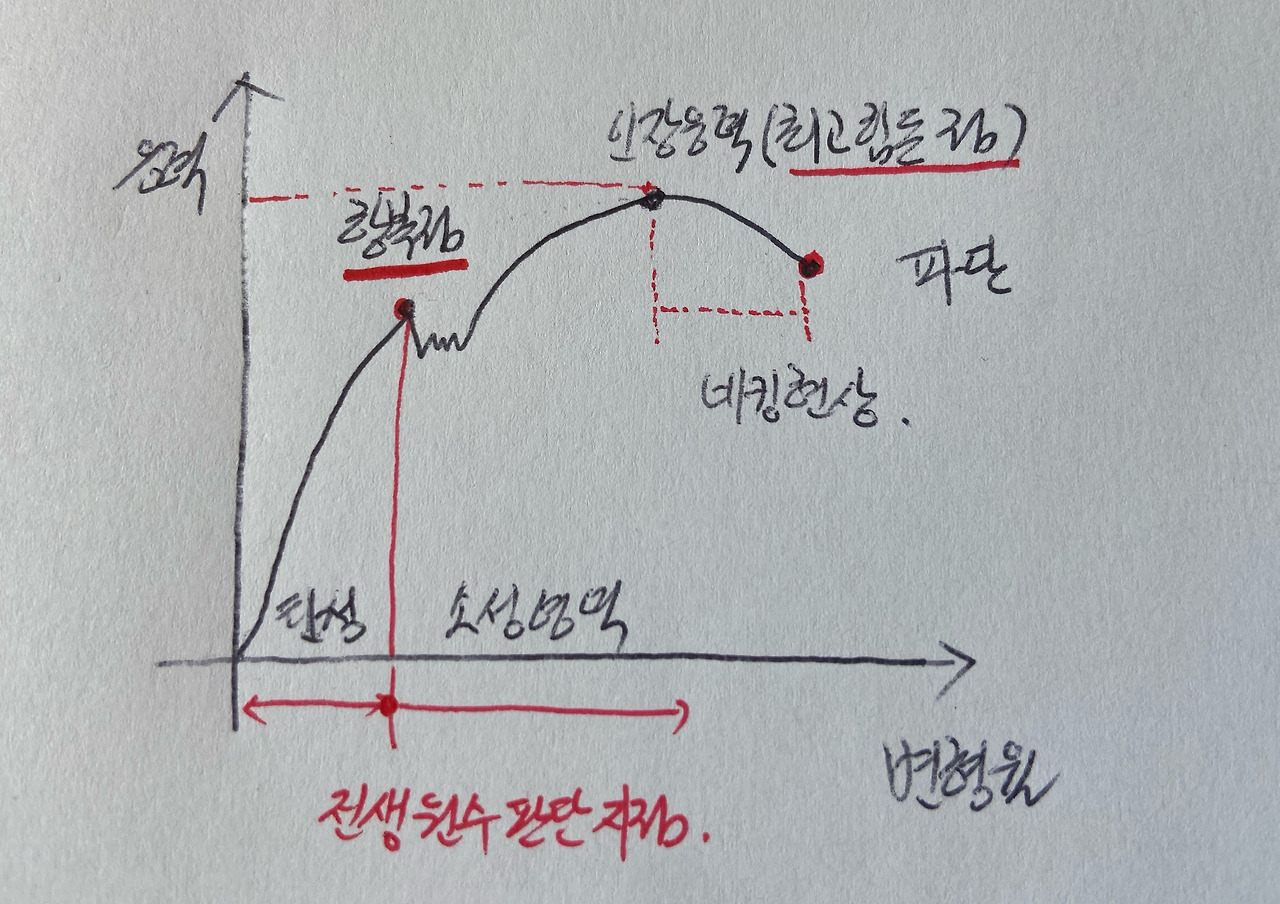 인장응력(최고힘든점)
응력
항복점
파단
네킹현상.
탄성
소성영역
변형율
전생원수 판단지점.